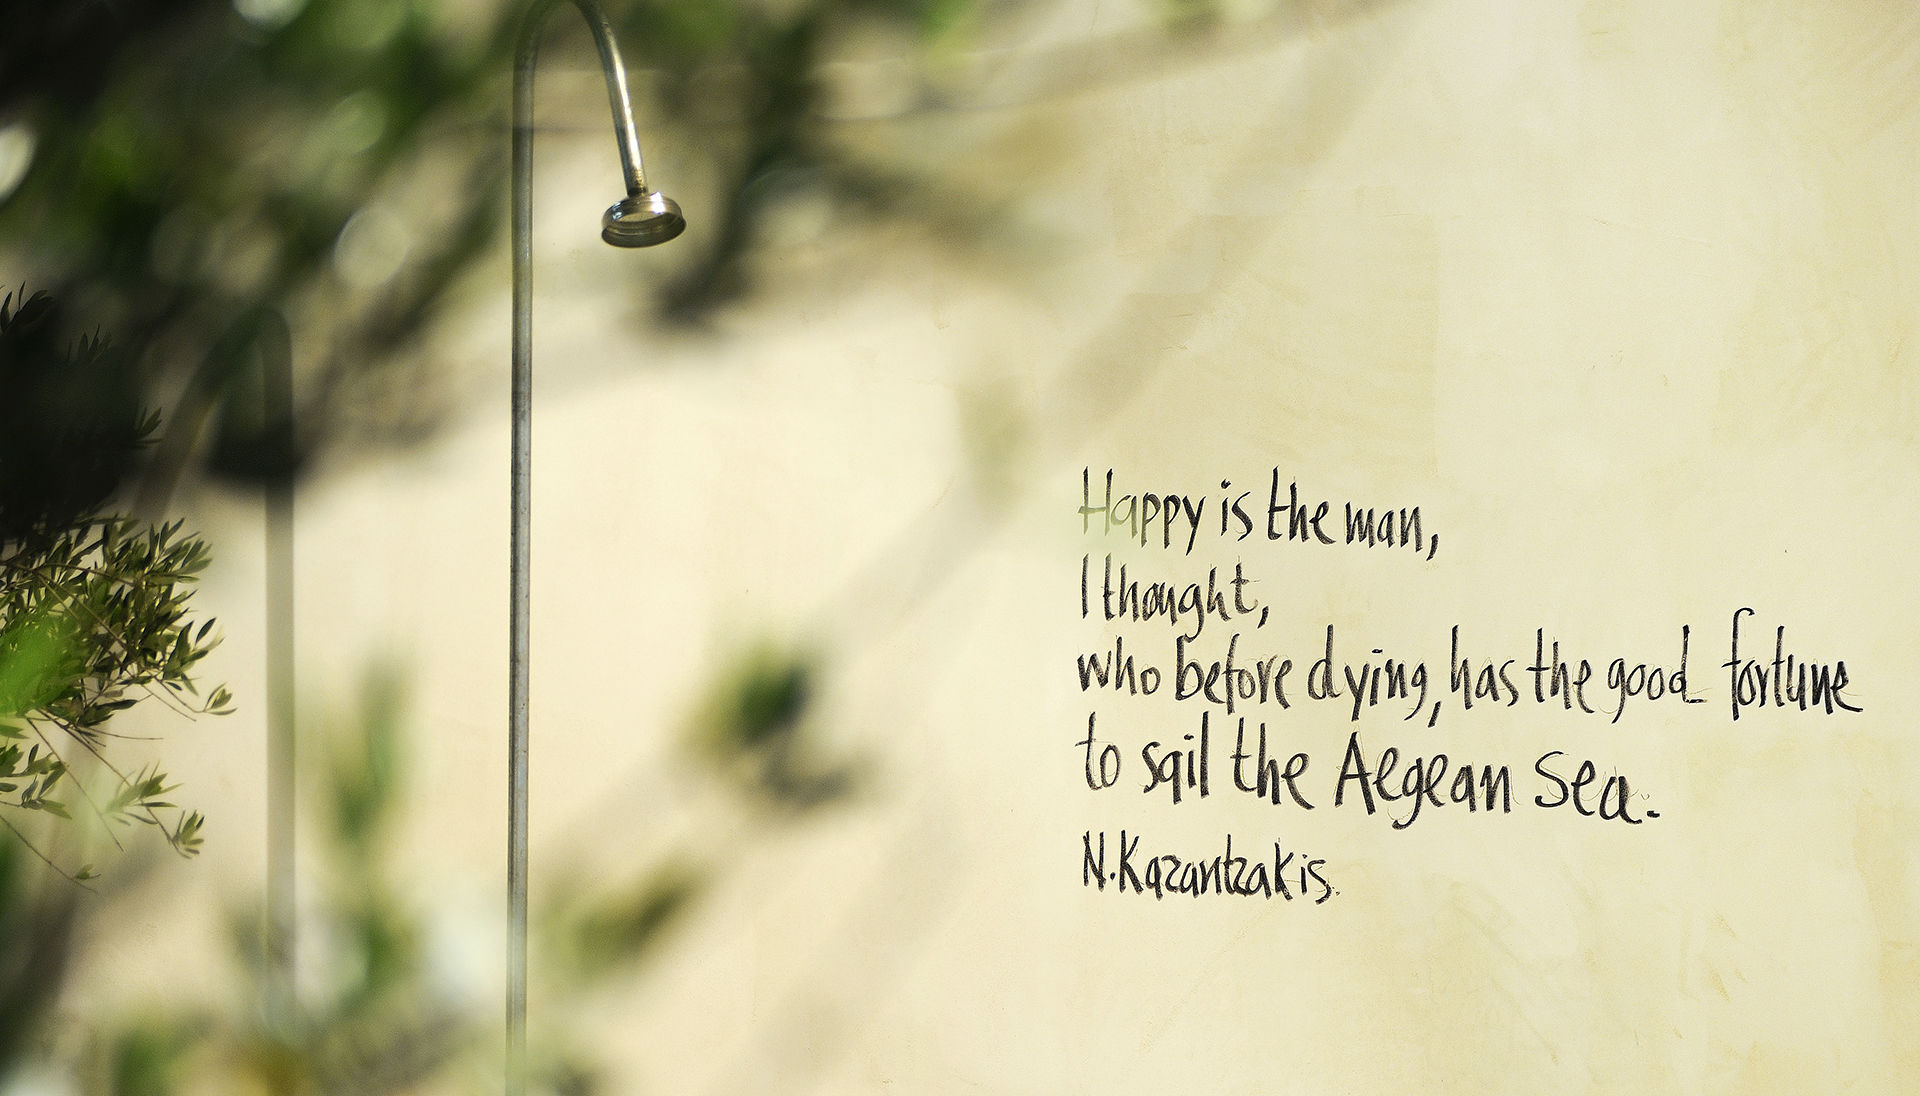 Happy is the man,
I thought,
who before dying, has the good fortune
to sail the Aegean Sea.
N. Kazantzakis.